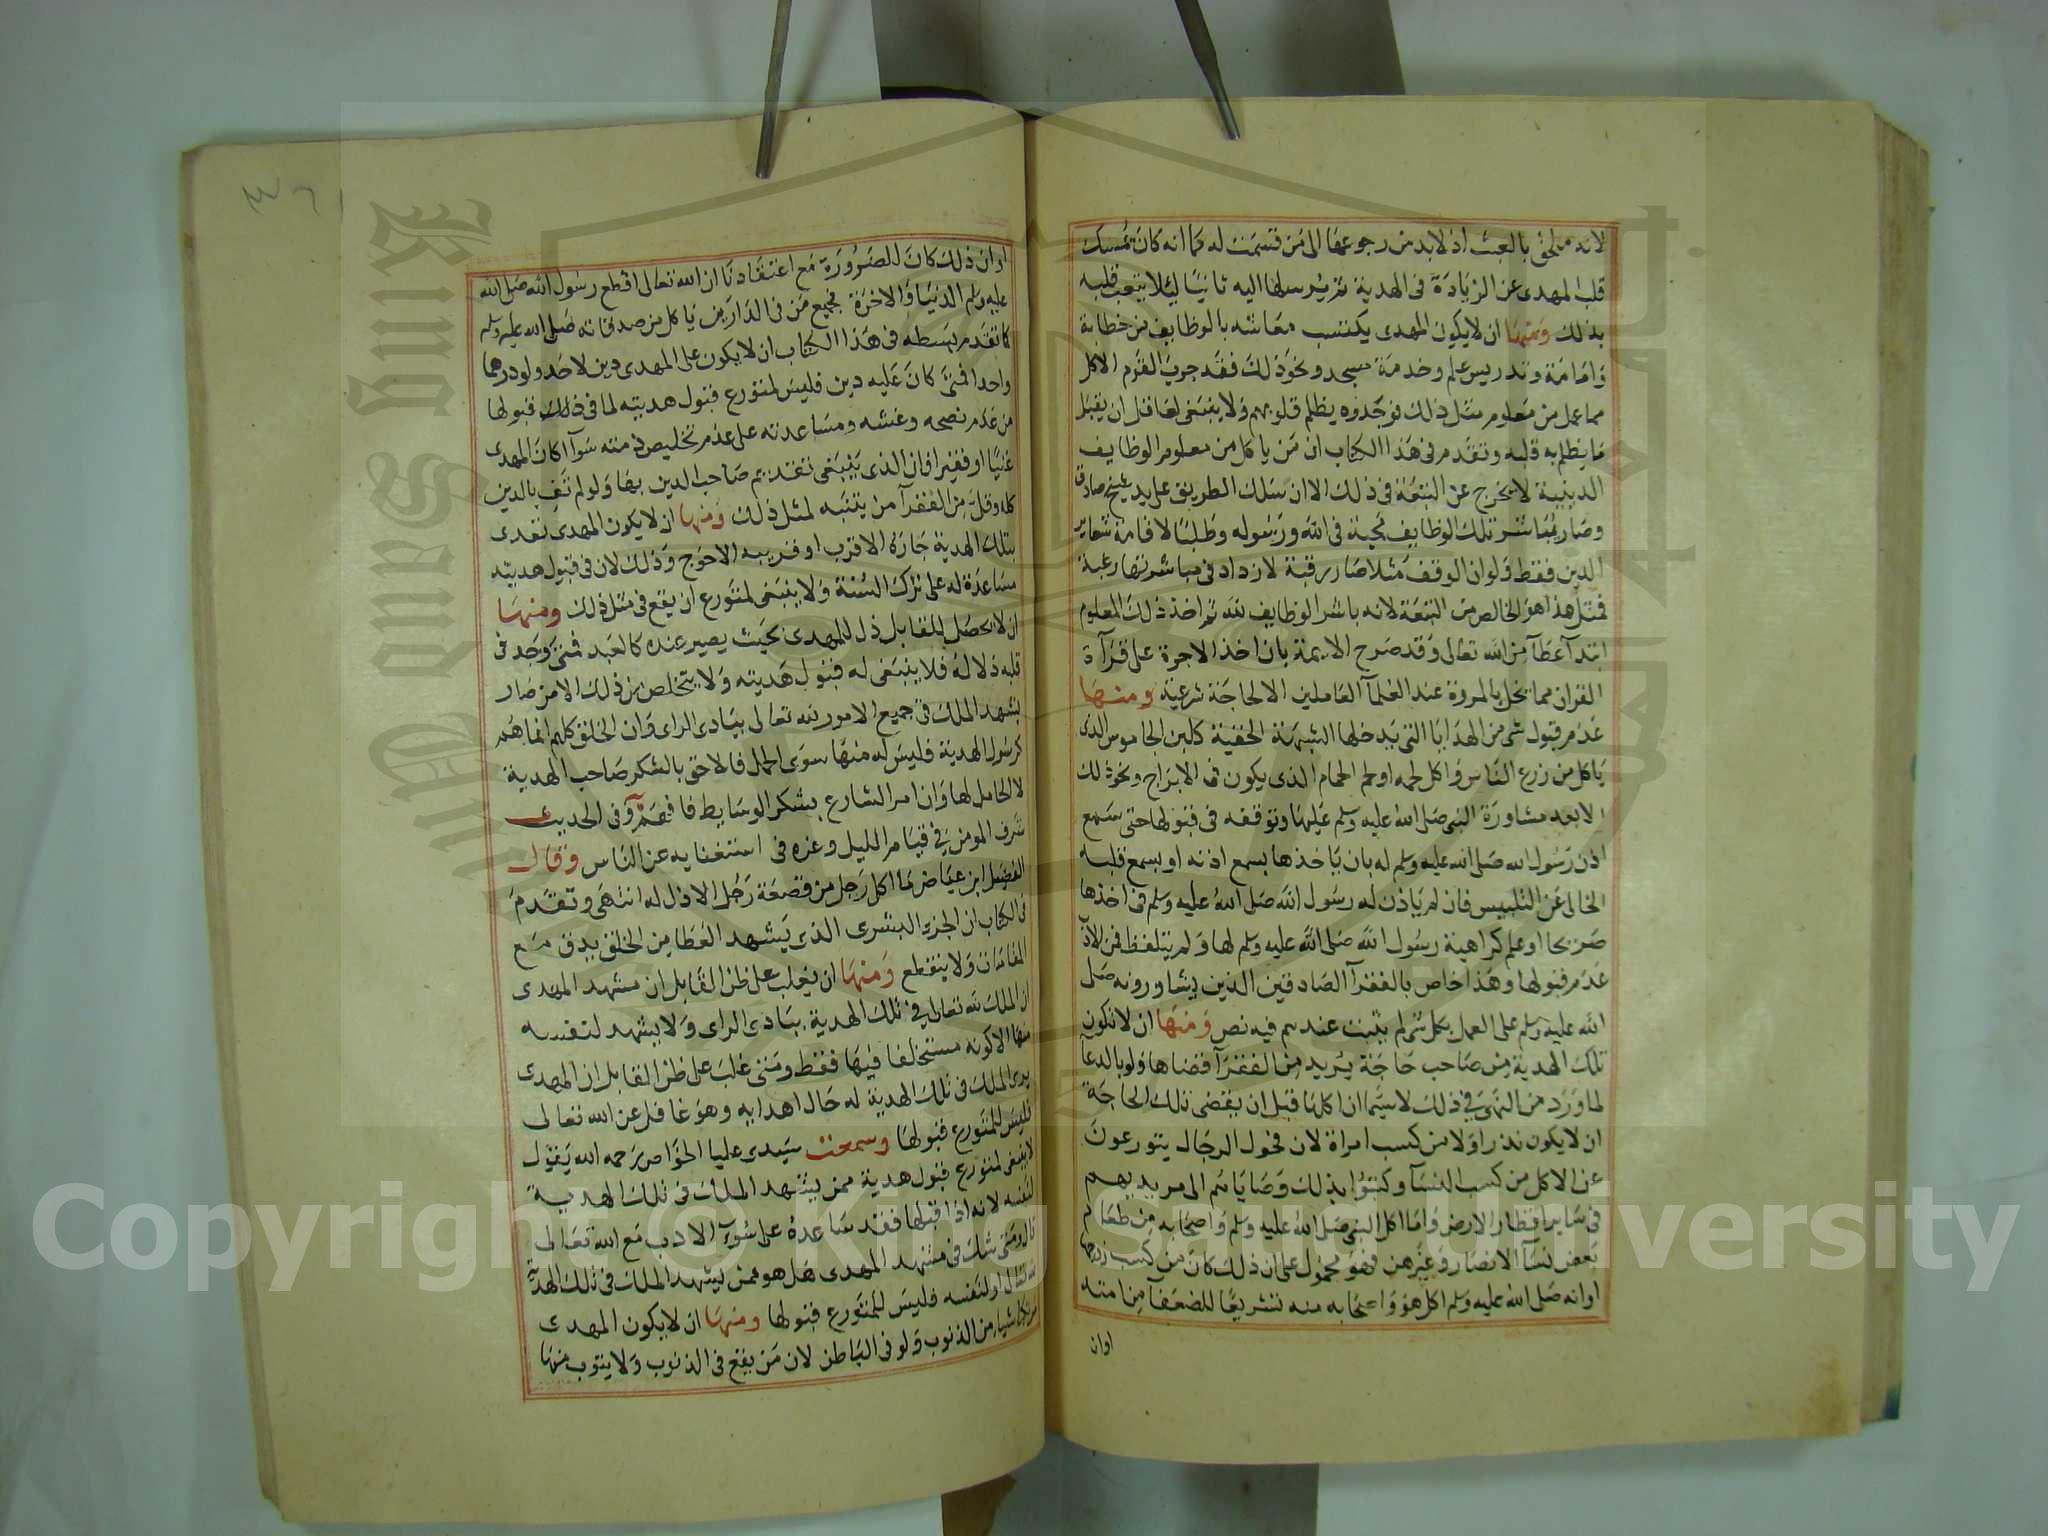 لانه ملحق بالعبث اذ لابد من رجوعها الى من قسمت له فما انه كان يمسك
قلب المهدى عن الزيادة فى الهدية ثم يرسلها اليه ثانيا لئلا يتعب قلبه
بذلك ومنها ان لا يكون المهدى يكتسب معاشه بالوظايف من خطابة
وامامة وتدريس علم وخدمة مسجد ونحو ذلك فقد جرب القوم الاكل
مما عمل من معلوم مثل ذلك فوجدوه يظلم قلوبهم ولا ينبغى لعاقل ان يقبل
ما يظلم به قلبه وتقدم فى هذا الكتاب ان من ياكل من معلوم الوظايف
الدينية لا يخرج عن التبعة فى ذلك الا ان سلك الطريق على يد شيخ صادق
وصار يباشر تلك الوظايف محبة فى الله ورسوله وطلبا لاقامة شعاير
الدين فقط ولو ان الوقف مثلا صار رقبة لازداد فى مباشرتها رغبة
فمثل هذا هو الخالص من التبعة لانه باشر الوظايف لله ثم اخذ ذلك المعلوم
ابتدآ عطآ من الله تعالى وقد صرح الايمة بان اخذ الاجرة على قرآة
القران مما يخل بالمروة عند العلمآ العاملين الا لحاجة شرعية ومنها
عدم قبول شى من الهدايا التى يدخلها الشبهة الخفية كلبن الجاموس الذى
ياكل من زرع الناس واكل لحمه او لحم الحمام الذى يكون فى الابراج ونحو ذلك
الا بعد مشاورة النبى صلى الله عليه وسلم عليها وتوقفه فى قبولها حتى سمع
اذن رسول الله صلى الله عليه وسلم له بان ياخذها بسمع اذنه او بسمع قلبه
الخالى عن التلبيس فان لم ياذن له رسول الله صلى الله عليه وسلم فى اخذها
صريحا او علم كراهية رسول الله صلى الله عليه وسلم لها ولم يتلفظ فمن الادب
عدم قبولها وهذا خاص بالفقرآ الصادقين الذين يشاورونه صلى
الله عليه وسلم على العمل بكل شى لم يثبت عندهم فيه نص ومنها ان لا تكون
تلك الهدية من صاحب حاجة يريد من الفقرآ قضاها ولو بالدعآ
لما ورد من النهى فى ذلك لاسيما ان اكلها قبل ان يقضى تلك الحاجة
ان لا يكون نذرا ولا من كسب امراة لان فحول الرجال يتورعون
عن الاكل من كسب النسآ وكتبوا بذلك وصاياهم الى مريديهم
فى ساير اقطار الارض واما اكل النبى صلى الله عليه وسلم واصحابه من طعام
بعض نسآ الانصار وغيرهن فهو محمول على ان ذلك كان من كسب زوجها
او انه صلى الله عليه وسلم اكل هو واصحابه منه تشريعا للضعفآ من امته
اوان
او ان ذلك كان للضرورة مع اعتقادنا ان الله تعالى اقطع رسول الله صلى الله
عليه وسلم الدنيا والاخرة فجميع من فى الدارين ياكل من صدقاته صلى الله عليه وسلم
كما تقدم بسطه فى هذا الكتاب ان لا يكون على المهدى دين لاحد ولو درهما
واحدا فمتى كان عليه دين فليس لمتورع قبول هديته لما فى ذلك قبولها
من عدم نصحه وغشه ومساعدته على عدم تخليص ذمته سوآ اكان المهدى
غنيا او فقيرا فان الذى ينبغى تقديم صاحب الدين بها ولو لم تف بالدين
كله وقل من الفقرآ من يتنبه لمثل ذلك ومنها ان لا يكون المهدى تعدى
بتلك الهدية جاره الاقرب او قريبه الاحوج وذلك لان فى قبول هديته
مساعدة له على ترك السنة ولا ينبغى لمتورع ان يقع فى مثل ذلك ومنها
ان لا يحصل بالمقابل ذل للمهدى بحيث يصير عنده كالعبد فمتى وجد فى
قلبه ذلا له فلا ينبغى له قبول هديته ولا يتخلص من ذلك الا من صار
يشهد الملك فى جميع الامور لله تعالى ببادى الراى وان الخلق كلهم انما هم
كرسول الهدية فليس له منها سوى الحمل فالاحق بالشكر صاحب الهدية
لا الحامل لها وان امر الشارع بشكر الوسايط فافهم وفى الحديث
شرف المومن فى قيام الليل وعزه فى استغنايه عن الناس وقال
الفضيل ابن عياض ما اكل رجل من قصعة رجل الا ذل له انتهى وتقدم
فى الكتاب ان الجزء البشرى الذى يشهد العطا من الخلق يدق مع
المقامات ولا ينقطع ومنها ان يغلب على ظن القابل ان مشهد المهدى
ان الملك لله تعالى فى تلك الهدية ببادى الراى ولا يشهد لنفسه
منها الا كونه مستخلفا فيها فقط ومتى غلب على ظن القابل ان المهدى
يرى الملك فى تلك الهدية له حال اهدايه وهو غافل عن الله تعالى
فليس لمتورع قبولها وسمعت سيدى عليا الخواص رحمه الله يقول
لا ينبغى لمتورع قبول هدية ممن يشهد الملك فى تلك الهدية
لنفسه لانه اذا قبلها فقد ساعده على سوء الادب مع الله تعالى
قال ومتى شك فى مشهد المهدى هل هو ممن يشهد الملك فى تلك الهدية
لله تعالى او لنفسه فليس للمتورع قبولها ومنها ان لا يكون المهدى
مرتكبا شيا من الذنوب ولو فى الباطن لان من يقع فى الذنوب ولا يتوب منها
Copyright © King Saud University